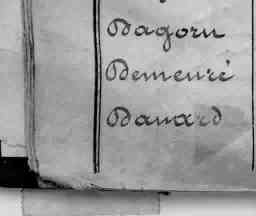 Dagorn
Demeuré
Davard